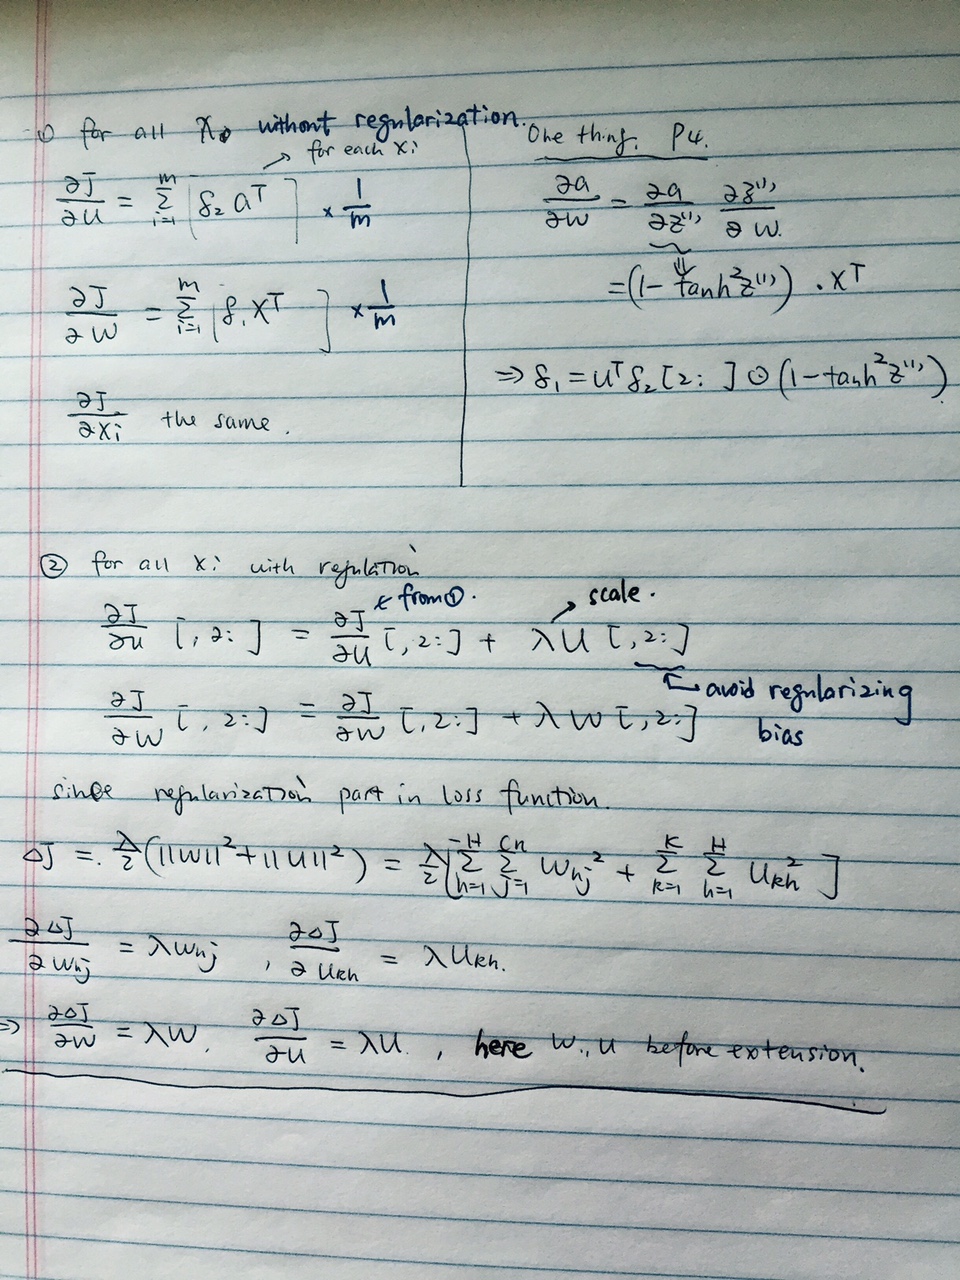 ① for all Xi without regularization.
→ for each Xi
∂J/∂U = Σ_{i=1}^{m} [δ₂ aᵀ] × 1/m
∂J/∂W = Σ_{i=1}^{m} [δ₁ Xᵀ] × 1/m
∂J/∂Xi the same.
One thing. P4.
∂a/∂W = ∂a/∂z⁽¹⁾ ∂z⁽¹⁾/∂W.
⇓
= (1 - tanh²z⁽¹⁾) · Xᵀ
⇒ δ₁ = Uᵀδ₂[2: ] ⊙ (1 - tanh²z⁽¹⁾)
② for all Xi with regulation
← from①.
→ scale.
∂J/∂U [, 2: ] = ∂J/∂U [, 2:] + λU [, 2:]
avoid regularizing
bias
∂J/∂W [, 2:] = ∂J/∂W [, 2:] + λW [, 2:]
since regularization part in loss function.
ΔJ =. λ/2 (||W||² + ||U||²) = λ/2 [Σ_{h=1}^{H} Σ_{j=1}^{Cn} Whj² + Σ_{k=1}^{K} Σ_{h=1}^{H} Ukh²]
∂ΔJ/∂Whj = λWhj , ∂ΔJ/∂Ukh = λUkh.
⇒ ∂ΔJ/∂W = λW, ∂ΔJ/∂U = λU. , here W., U before extension.